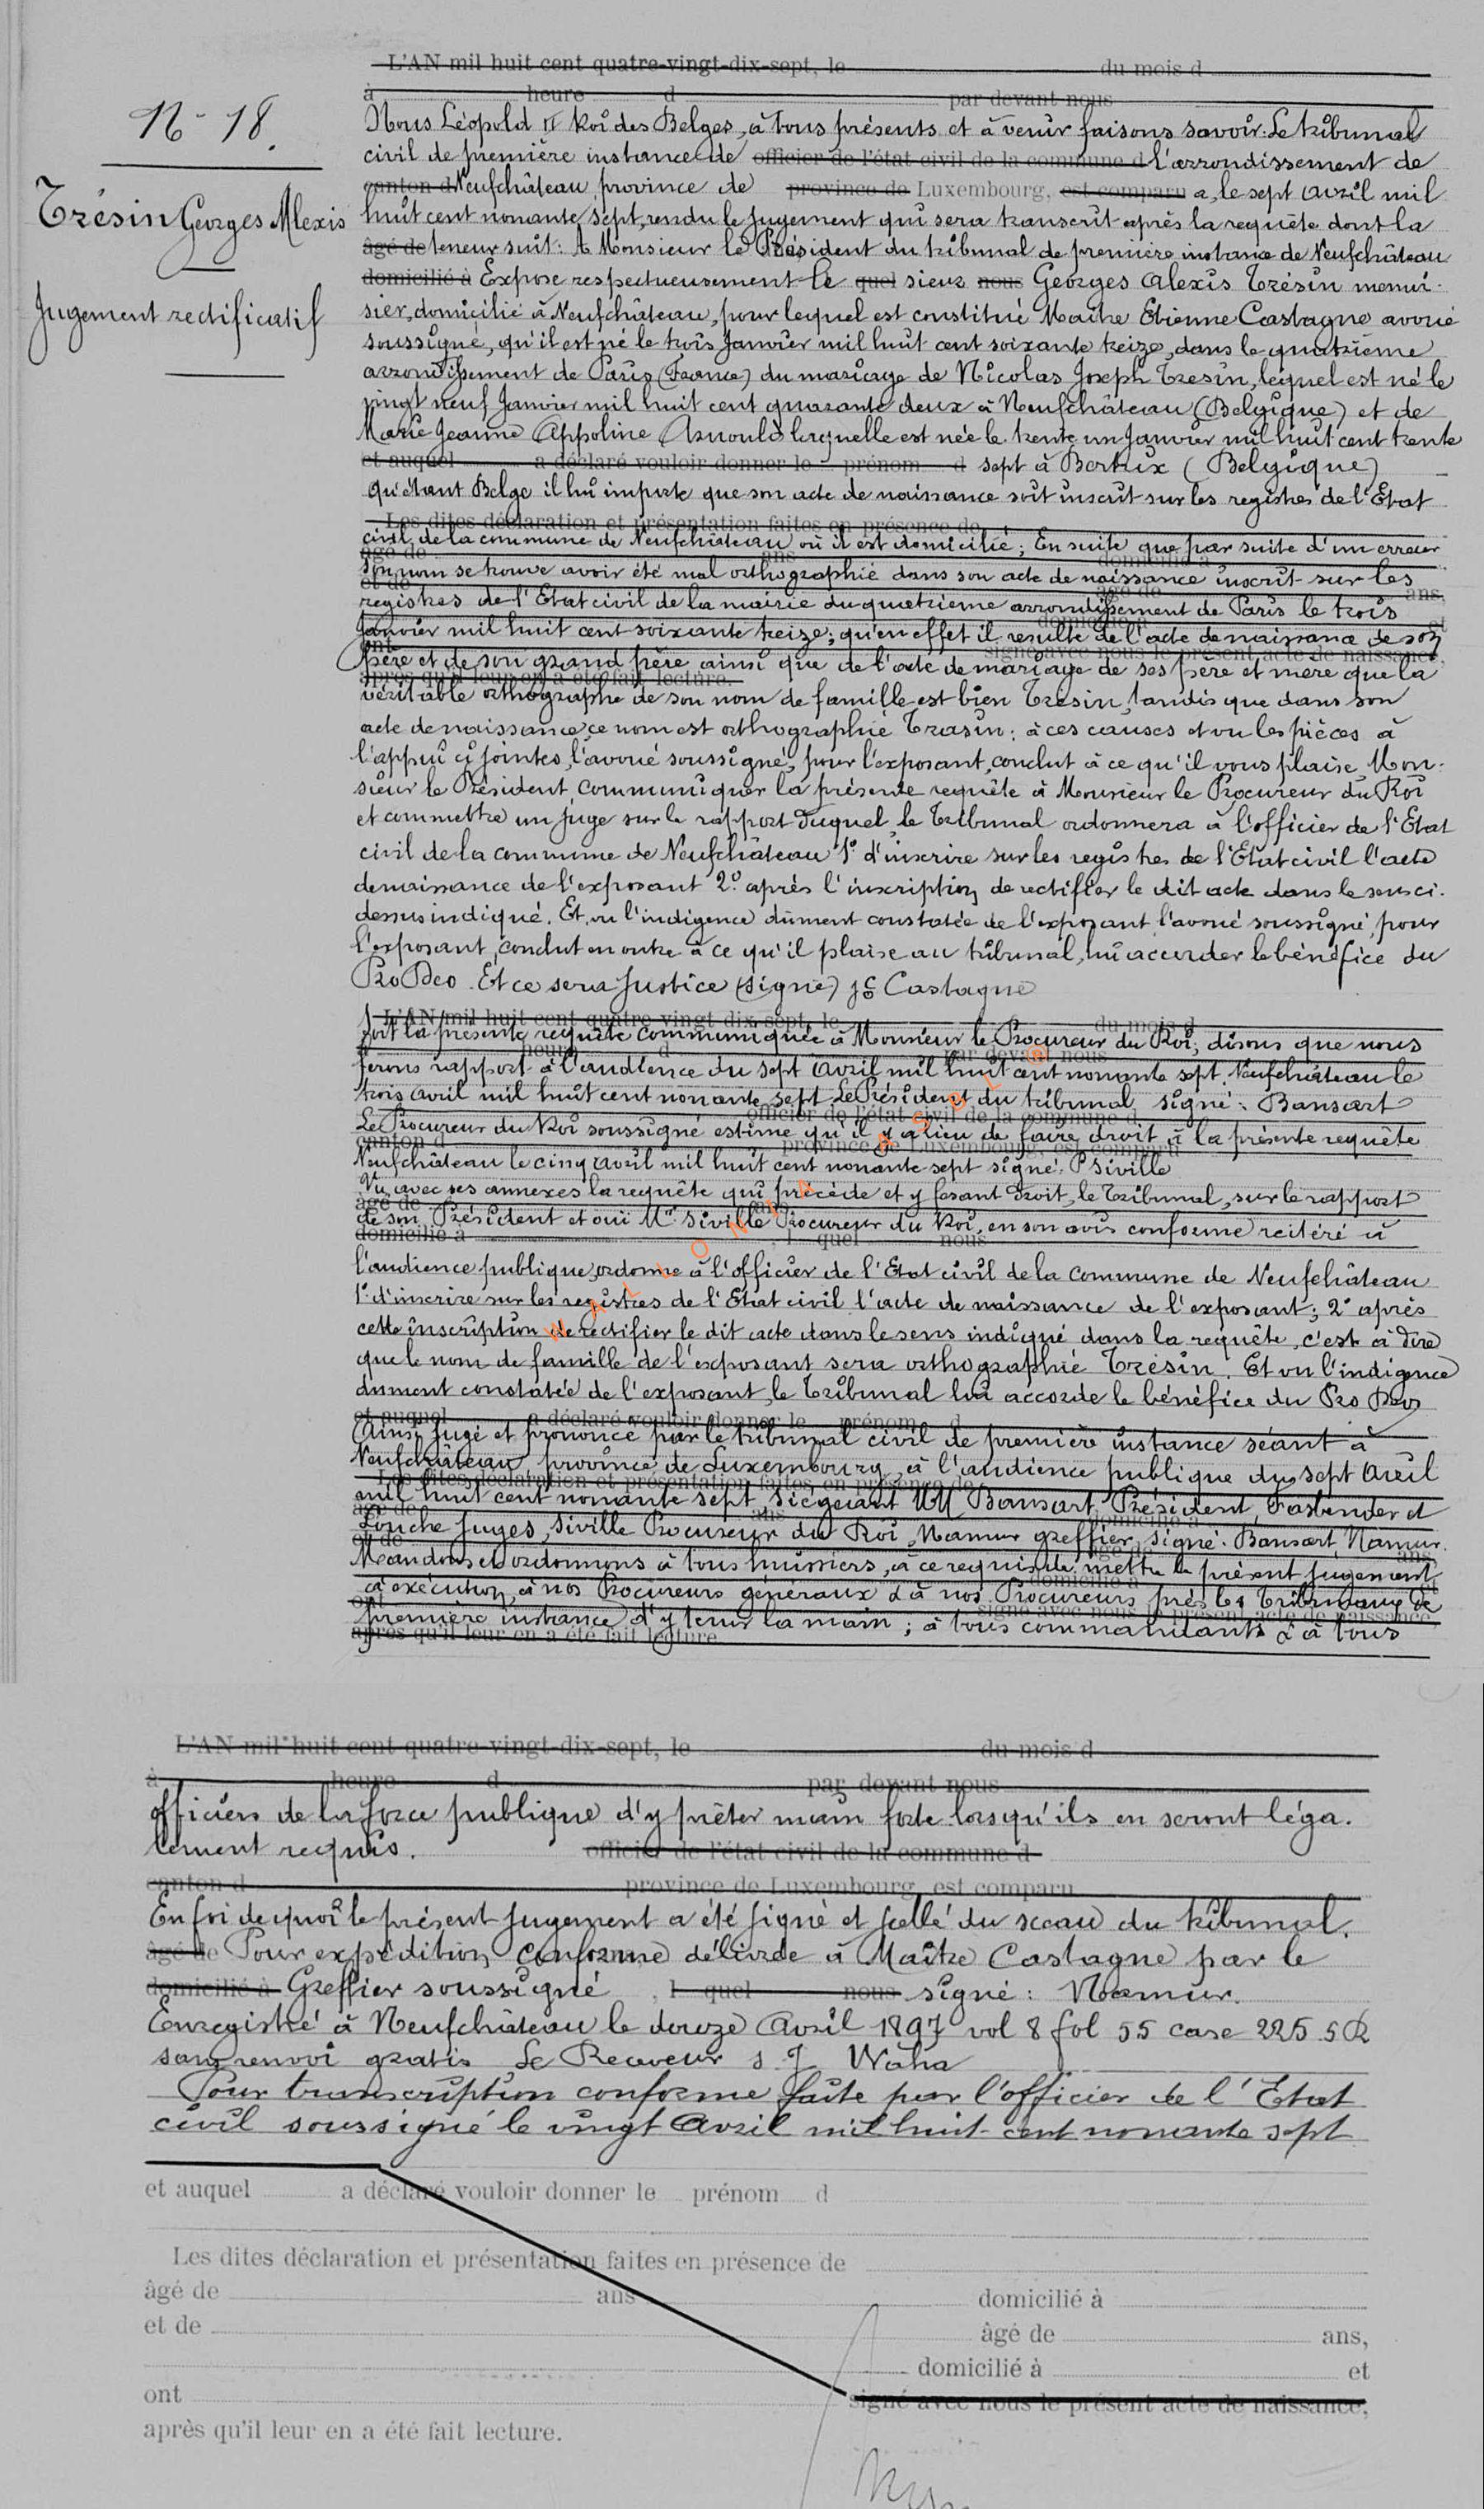 L'AN mil huit cent quatre-vingt-dix-sept, le du mois d
à heure d par devant nous
N° 18.
Nous Léopold II Roi des Belges, à tous présents et à venir faisons savoir: Le tribunal
civil de première instance de officier de l'état civil de la commune d l'arrondissement de
canton d Neufchâteau province de province de Luxembourg, est comparu a, le sept avril mil
Trésin Georges Alexis
huit cent nonante sept, rendu le jugement qui sera transcrit après la requête dont la
âgé de teneur suit: A Monsieur le Président du tribunal de première instance de Neufchâteau
domicilié à Expose respectueusement le quel sieur nous Georges Alexis Trésin menui-
Jugement rectificatif
sier, domicilié à Neufchâteau, pour lequel est constitué Maître Etienne Castagne avoué
soussigné, qu'il est né le trois Janvier mil huit cent soixante treize, dans le quatrième
arrondissement de Paris (France) du mariage de Nicolas Joseph Tresin, lequel est né le
vingt neuf Janvier mil huit cent quarante deux à Neufchâteau (Belgique) et de
Marie Jeanne Appoline Arnould laquelle est née le trente un Janvier mil huit cent trente
et auquel a déclaré vouloir donner le prénom d sept à Bertrix (Belgique)
qu'étant Belge il lui importe que son acte de naissance soit inscrit sur les registres de l'Etat
Les dites déclaration et présentation faites en présence de
civil de la commune de Neufchâteau où il est domicilié; En suite que par suite d'un erreur
âgé de ans domicilié à
son nom se trouve avoir été mal orthographié dans son acte de naissance inscrit sur les
et de âgé de ans,
registres de l'Etat civil de la mairie du quatrieme arrondissement de Paris le trois
domicilié à et
Janvier mil huit cent soixante treize; qu'en effet il resulte de l'acte de naissance de son
ont signé avec nous le présent acte de naissance,
père et de son grand père ainsi que de l'acte de mariage de ses père et mère que la
après qu'il leur en a été fait lecture.
véritable orthographe de son nom de famille est bien Trésin, tandis que dans son
acte de naissance ce nom est orthographié Trasin: à ces causes et vu les pièces à
l'appui ci jointes, l'avoué soussigné, pour l'exposant, conclut à ce qu'il vous plaise Mon-
sieur le Président, communiquer la présente requête à Monsieur le Procureur du Roi
et commettre un juge sur le rapport duquel le Tribunal ordonnera à l'officier de l'Etat
civil de la commune de Neufchâteau 1° d'inscrire sur les registres de l'Etat civil l'acte
de naissance de l'exposant 2° après l'inscription de rectifier le dit acte dans le sens ci-
dessus indiqué. Et, vu l'indigence dûment constatée de l'exposant l'avoué soussigné, pour
l'exposant, conclut en outre à ce qu'il plaise au tribunal, lui accorder le bénéfice du
Pro Deo. Et ce sera Justice (signé) Castagne
L'AN mil huit cent quatre-vingt-dix-sept, le du mois d
Soit la présente requête communiquée à Monsieur le Procureur du Roi; disons que nous
heure d par devant nous
ferons rapport à l'audience du sept avril mil huit cent nonante sept. Neufchâteau le
trois avril mil huit cent nonante sept Le Président du tribunal signé: Bansart
officier de l'état civil de la commune d
Le Procureur du Roi soussigné estime qu'il y a lieu de faire droit à la présente requête
canton d province de Luxembourg, est comparu
Neufchâteau le cinq avril mil huit cent nonante sept signé: P Siville
Vu avec ses annexes la requête qui précède et y fesant droit, le Tribunal, sur le rapport
âgé de ans
de son Président et oui Mr Siville Procureur du Roi, en son avis conforme réitéré à
domicilié à l quel nous
l'audience publique, ordonne à l'officier de l'Etat civil de la commune de Neufchâteau
1° d'inscrire sur les registres de l'Etat civil l'acte de naissance de l'exposant; 2° après
cette inscription de rectifier le dit acte dans le sens indiqué dans la requête, c'est à dire
que le nom de famille de l'exposant sera orthographié Trésin. Et vu l'indigence
dument constatée de l'exposant, le Tribunal lui accorde le bénéfice du Pro Deo
et auquel a déclaré vouloir donner le prénom d
Ainsi Jugé et prononcé par le tribunal civil de première instance séant à
Neufchâteau, province de Luxembourg, à l'audience publique du sept Avril
Les dites déclaration et présentation faites en présence de
mil huit cent nonante sept, siégeaient MM Bansart, Président, Fasbender et
âgé de ans domicilié à
Louche Juges, Siville Procureur du Roi, Namur greffier, signé: Bansart, Namur.
et de âgé de ans,
Mandons et ordonnons à tous huissiers, à ce requis de mettre le présent jugement
domicilié à et
à exécution, à nos Procureurs généraux & à nos Procureurs près les Tribunaux de
ont signé avec nous le présent acte de naissance,
première instance d'y tenir la main; à tous commandants & à tous
après qu'il leur en a été fait lecture
WALLONIA ASBL ®
L'AN mil huit cent quatre-vingt-dix-sept, le du mois d
à heure d par devant nous
officiers de la force publique d'y prêter main forte lorsqu'ils en seront léga-
lement requis. officier de l'état civil de la commune d
canton d province de Luxembourg, est comparu
En foi de quoi le présent jugement a été signé et scellé du sceau du tribunal.
âgé de Pour expédition conforme délivrée à Maître Castagne par le
domicilié à Greffier soussigné, l quel nous signé: Namur.
Enregistré à Neufchâteau le douze Avril 1897 vol 8 fol 55 case 225 5 R
sans renvoi gratis Le Receveur s J Waha
Pour transcription conforme faite par l'officier de l'Etat
civil soussigné le vingt Avril mil huit cent nonante sept
et auquel a déclaré vouloir donner le prénom d
Les dites déclaration et présentation faites en présence de
âgé de ans domicilié à
et de âgé de ans,
domicilié à et
ont signé avec nous le présent acte de naissance,
après qu'il leur en a été fait lecture.